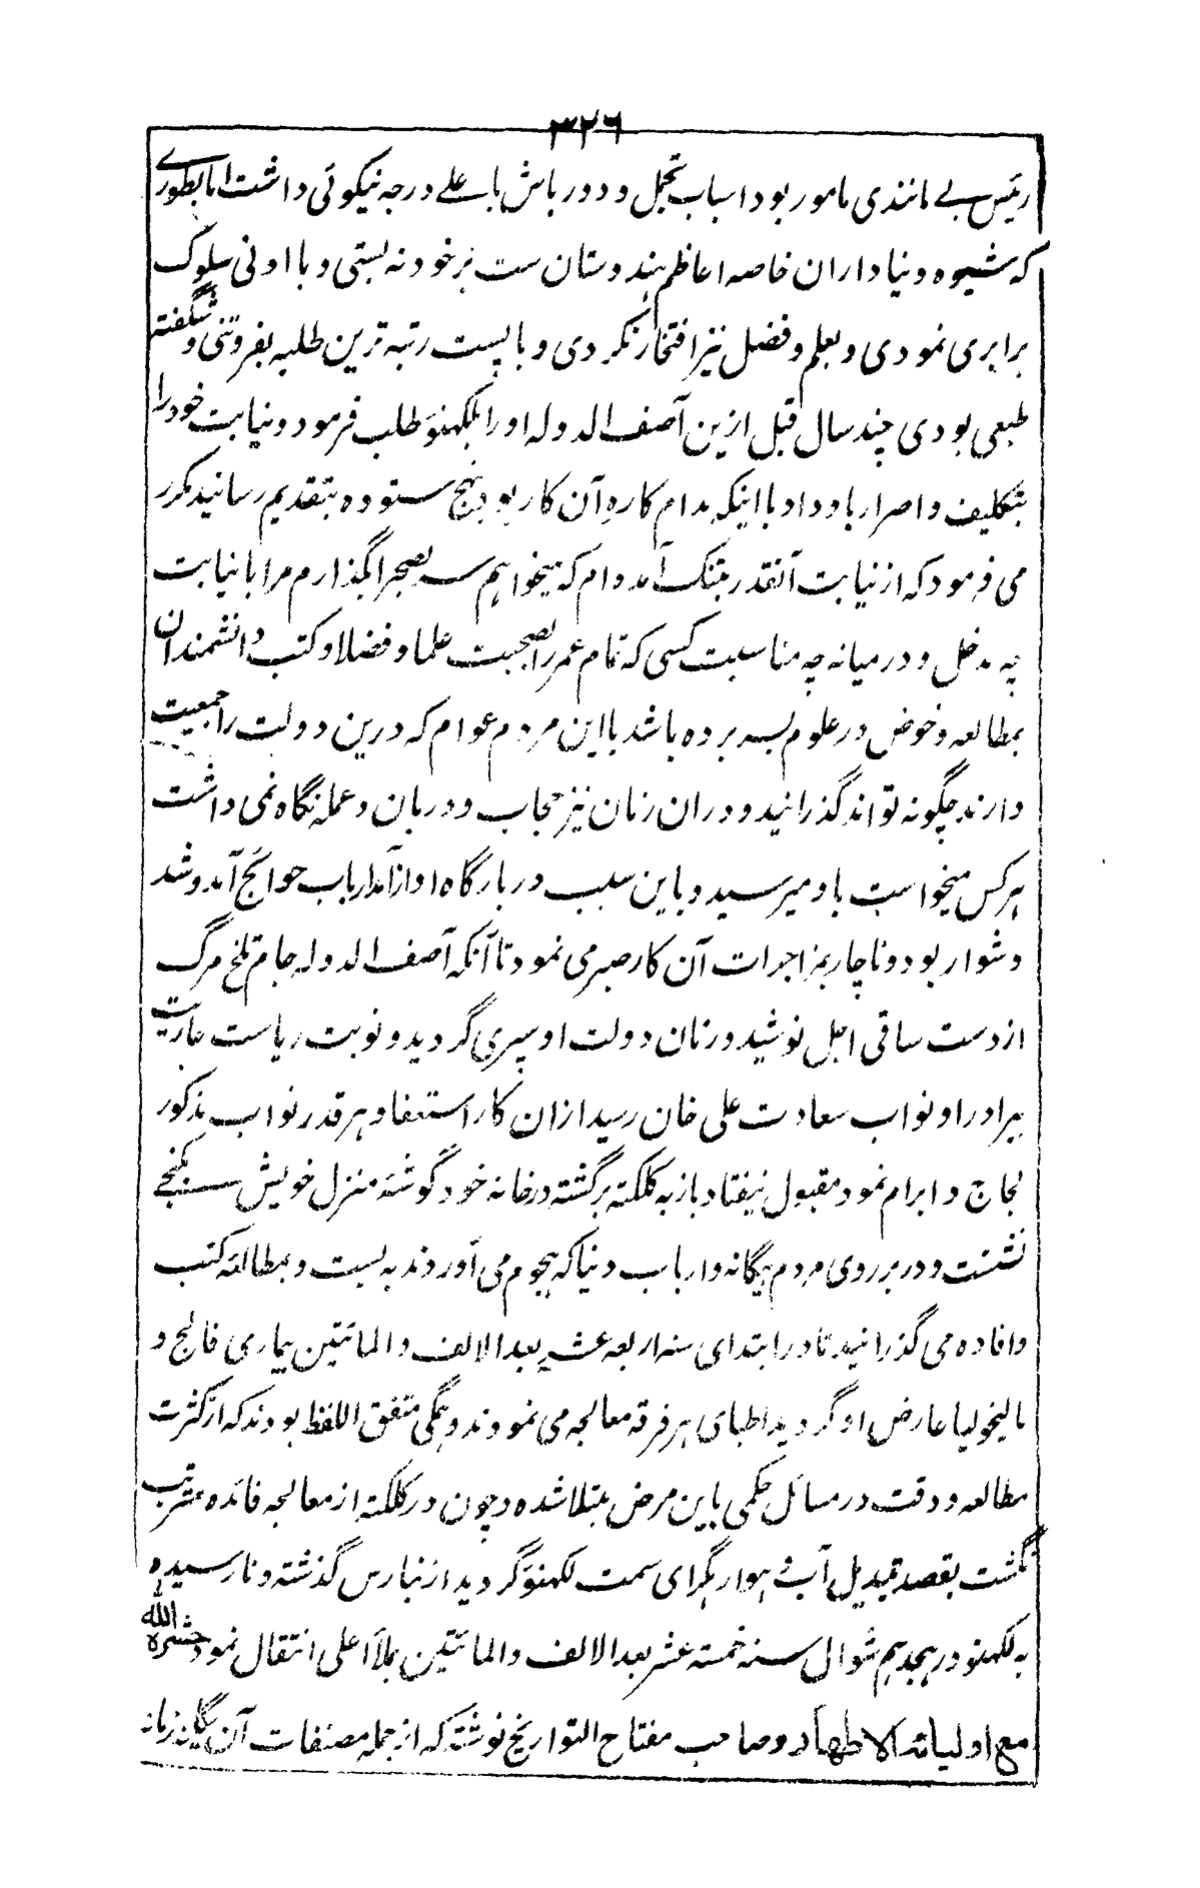 ۳۲۶
رئیس بے مانندی مامور بود اسباب تجمل و دور باش باعلے درجه نیکوئی داشت اما بطورے
که شیوه دنیاداران خاصه اعاظم هندوستان ست بر خود نه بستی و با ادنی سلوک
برابری نمودی و بعلم و فضل نیز افتخار نکردی و با پست رتبه ترین طلبه بفروتنی و شگفته
طبعی بودی چند سال قبل ازین آصف الدوله او را بلکهنؤ طلب فرمود و نیابت خود را
بتکلیف و اصرار باو داد با اینکه مدام کاره آن کار بود بنهج ستوده بتقدیم رسانید مکرر
می فرمود که از نیابت آنقدر بتنگ آمده ام که میخواهم سر بصحرا گذارم مرا با نیابت
چه مدخل و درمیانه چه مناسبت کسی که تمام عمر را بصحبت علما و فضلا و کتب دانشمندان
بمطالعه و خوض در علوم بسر برده باشد با این مردم عوام که درین دولت را جمعیت
دارند چگونه تواند گذرانید و دران زمان نیز حجاب و دربان و عمله نگاه نمی داشت
هر کس میخواست باو میرسید و باین سبب در بارگاه او از آمد ارباب حوائج آمد و شد
دشوار بود و ناچار بمزاجرات آن کار صبر می نمود تا آنکه آصف الدوله جام تلخ مرگ
از دست ساقی اجل نوشید و زمان دولت او سپری گردید و نوبت ریاست عاریت
ببرادر او نواب سعادت علی خان رسید ازان کار استعفا و هر قدر نواب مذکور
لجاج و ابرام نمود مقبول نیفتاد باز به کلکته برگشته در خانه خود گوشهٔ منزل خویش بکنجے
نشست و در بر روی مردم بیگانه و ارباب دنیا که هجوم می آوردند به بست و بمطالعهٔ کتب
و افاده می گذرانید تا در ابتدای سنه اربعه عشر بعد الالف و المائتین بیماری فالج و
مالیخولیا عارض او گردید اطبای هر فرقه معالجه می نمودند و همگی متفق اللفظ بودند که از کثرت
مطالعه و دقت در مسائل حکمی باین مرض مبتلا شده و چون در کلکته از معالجه فائده مترتب
نگشت بقصد تبدیل آب و هوا رهگرای سمت لکهنؤ گردید از بنارس گذشته و نارسیده
به لکهنو در هیجدهم شوال سنه خمسة عشر بعد الالف و المائتین بملأ اعلی انتقال نمود حشره الله
مع اولیائه الاطهار و صاحب مفتاح التواریخ نوشته که از جمله مصنفات آن یگانه زمانه